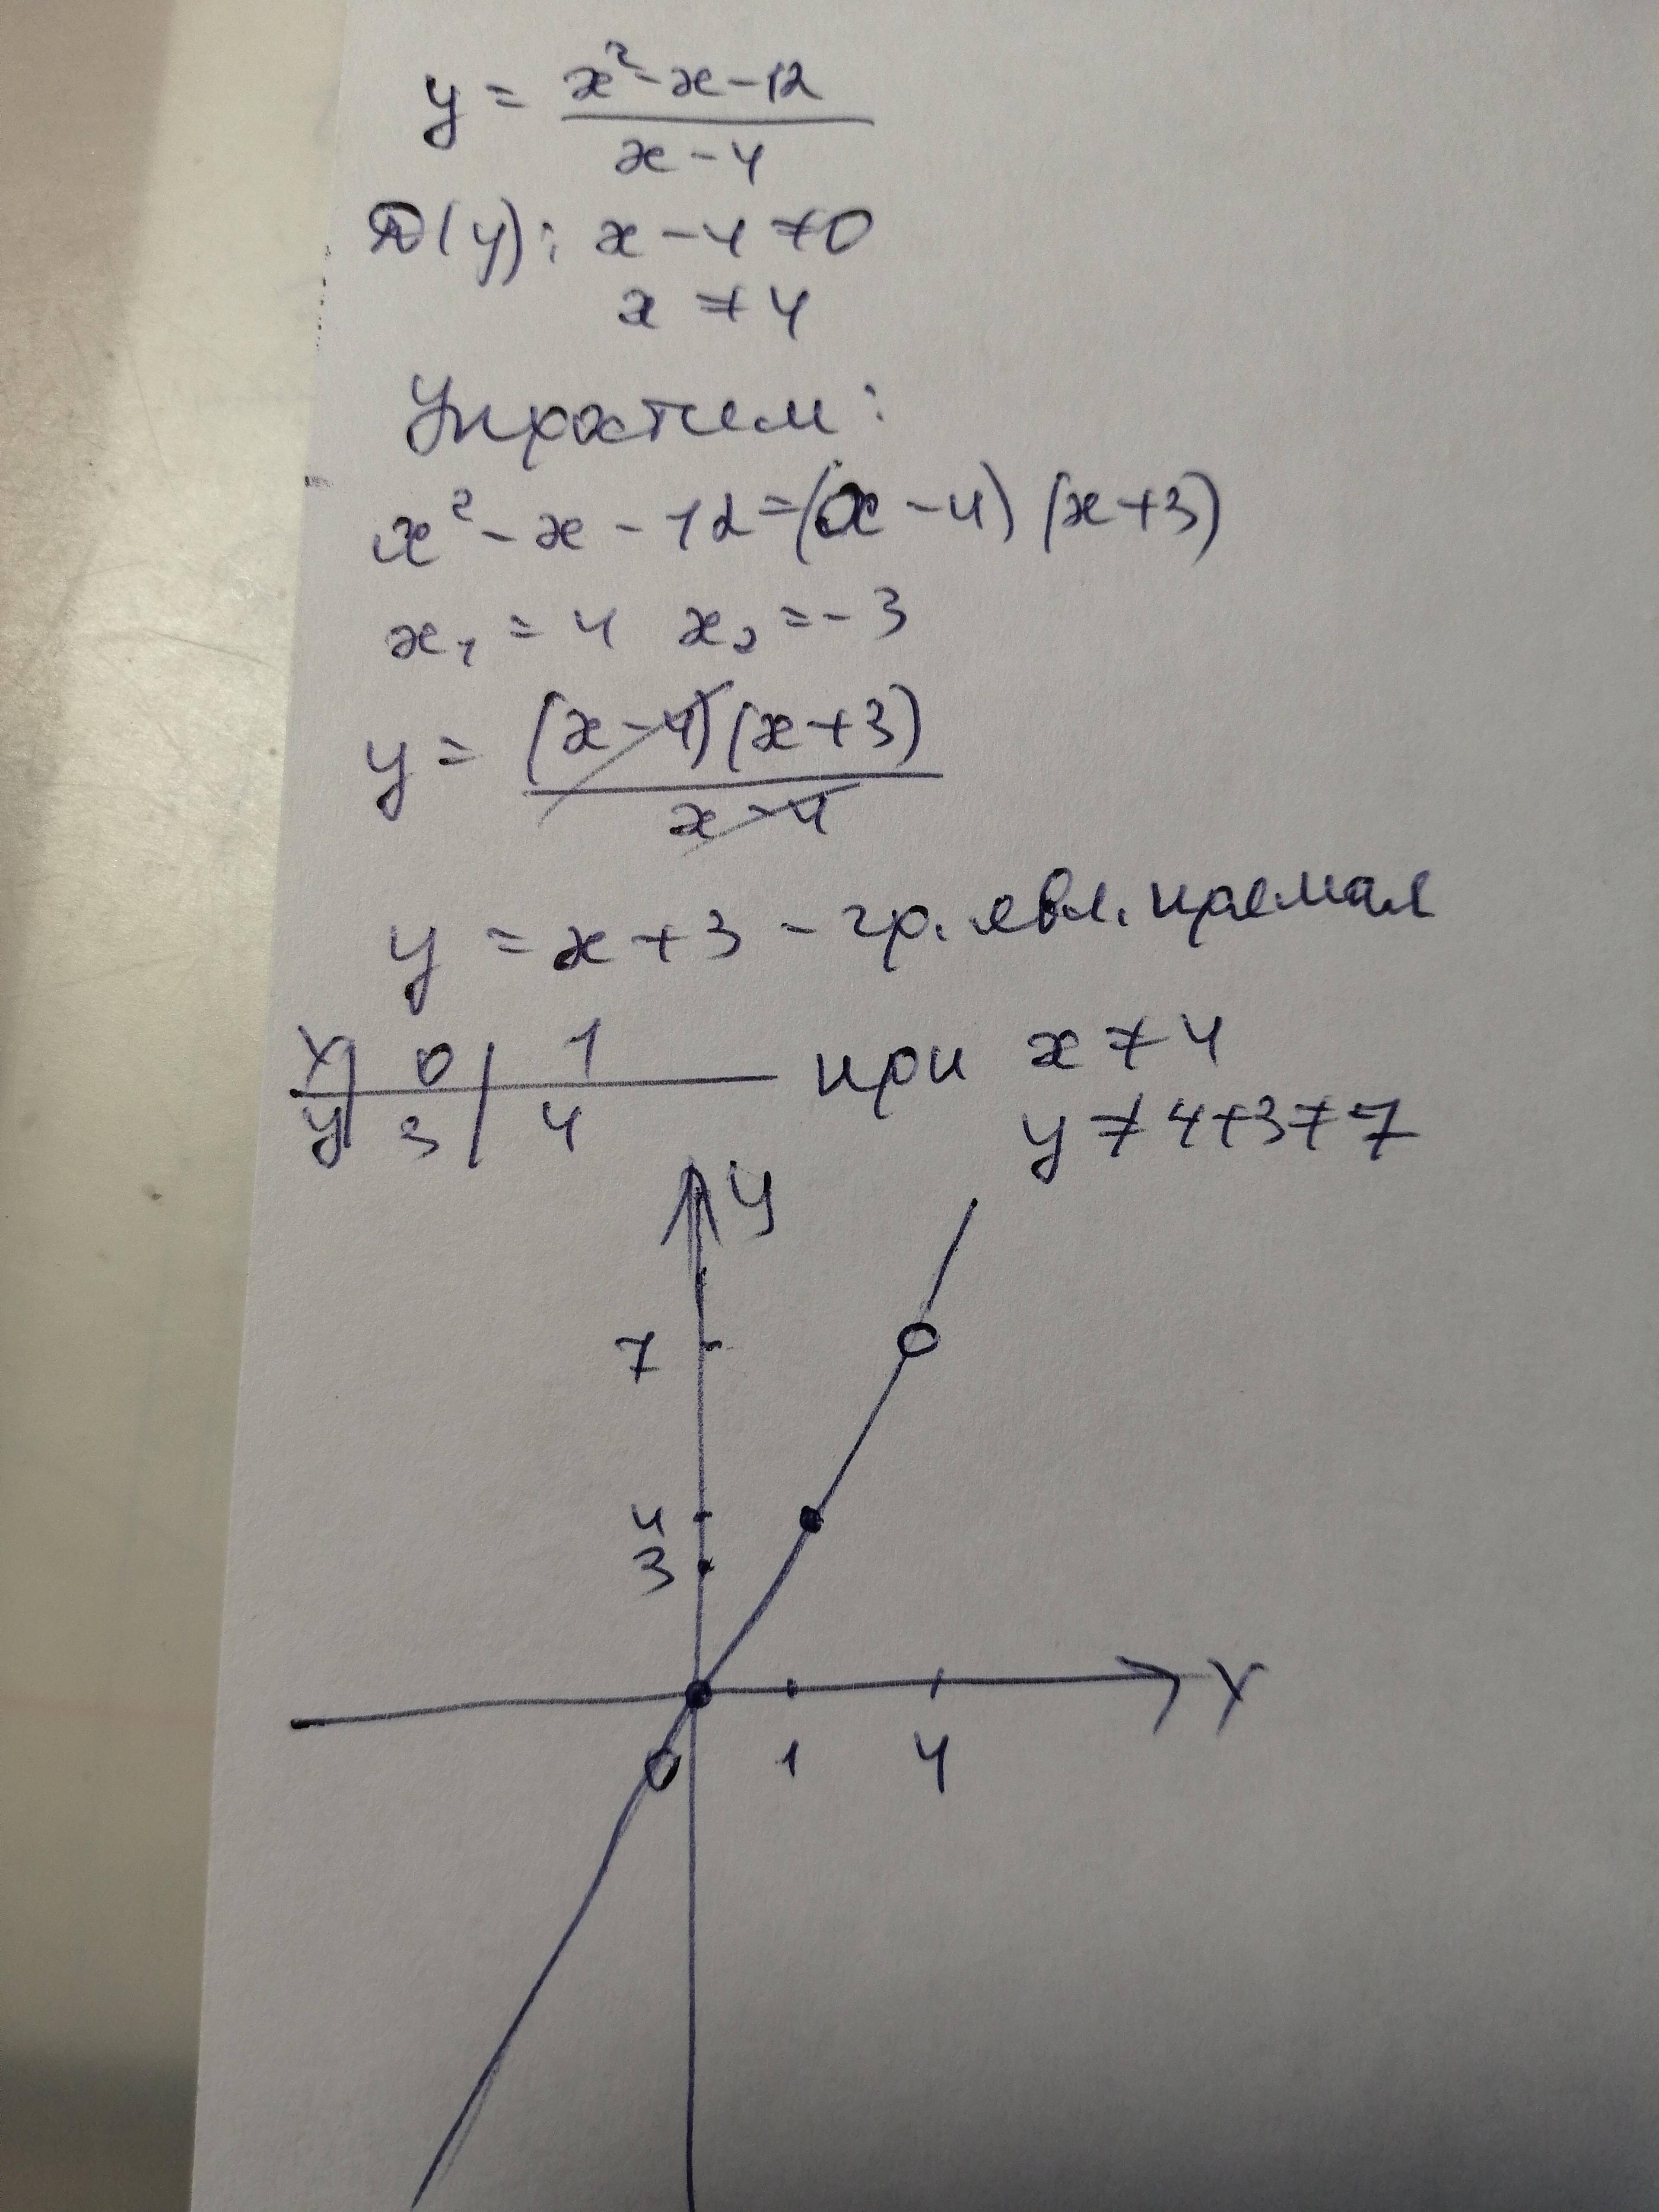 y = (x² - x - 12)/(x - 4)
D(y): x - 4 ≠ 0
x ≠ 4
Упростим:
x² - x - 12 = (x - 4) (x + 3)
x₁ = 4 x₂ = - 3
y = (x - 4)(x + 3)/(x - 4)
y = x + 3 - гр. явл. прямая
x | 0 | 1 при x ≠ 4
y | 3 | 4 y ≠ 4 + 3 ≠ 7
y
7
4
3
x
1 4